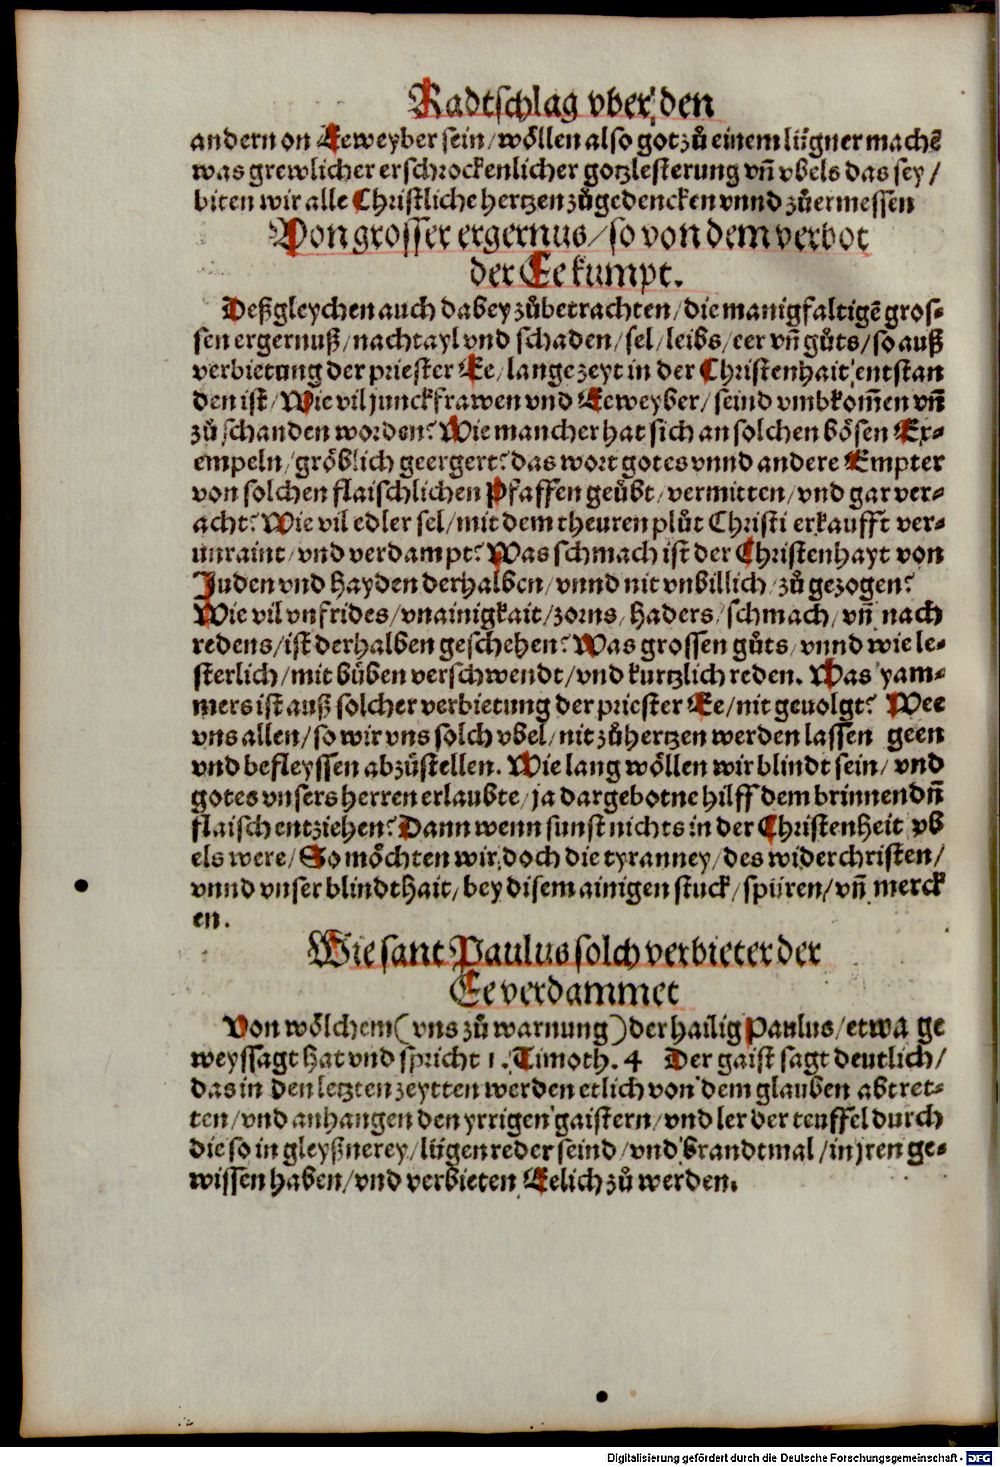 Radtschlag vber den
andern on Eeweyber sein/wöllen also got zů einem lügner machē
was grewlicher erschrockenlicher gotzlesterung vñ vbels das sey/
biten wir alle Christliche hertzen zůgedencken vnnd zůermessen
Von grosser ergernus/so von dem verbot
der Ee kumpt.
Deßgleychen auch dabey zůbetrachten/die manigfaltigē gros-
sen ergernuß/nachtayl vnd schaden/sel/leibs/eer vñ gůts/so auß
verbietung der priester Ee/lange zeyt in der Christenhait entstan
den ist/Wie vil junckfrawen vnd Eeweyber/seind vmbkom̄en vñ
zů schanden worden? Wie mancher hat sich an solchen bösen Ex-
empeln/gröblich geergert? das wort gotes vnnd andere Empter
von solchen flaischlichen Pfaffen geübt/vermitten/vnd gar ver-
acht? Wie vil edler sel/mit dem theuren plůt Christi erkaufft ver-
unraint/vnd verdampt? Was schmach ist der Christenhayt von
Juden vnd Hayden derhalben/vnnd nit vnbillich/zů gezogen?
Wie vil vnfrides/vnainigkait/zorns/haders/schmach/vñ nach
redens/ist derhalben geschehen? Was grossen gůts/vnnd wie le-
sterlich/mit bůben verschwendt/vnd kurtzlich reden. Was yam-
mers ist auß solcher verbietung der priester Ee/nit geuolgt? Wee
vns allen/so wir vns solch vbel/nit zůhertzen werden lassen geen
vnd befleyssen abzůstellen. Wie lang wöllen wir blindt sein/vnd
gotes vnsers herren erlaubte/ja dargebotne hilff dem brinnendñ
flaisch entziehen? Dann wenn sunst nichts in der Christenheit vb
els were/So möchten wir doch die tyranney/des widerchristen/
vnnd vnser blindthait/bey disem ainigen stuck/spüren/vñ merck
en.
Wie sant Paulus solch verbieter der
Ee verdammet
Von wölchem(vns zů warnung)der hailig Paulus/etwa ge
weyssagt hat vnd spricht 1. Timoth. 4 Der gaist sagt deutlich/
das in den letzten zeytten werden etlich von dem glauben abtret-
ten/vnd anhangen den yrrigen gaistern/vnd ler der teuffel durch
die so in gleyßnerey/lügenreder seind/vnd brandtmal/in jren ge-
wissen haben/vnd verbieten Eelich zů werden.
Digitalisierung gefördert durch die Deutsche Forschungsgemeinschaft - DFG